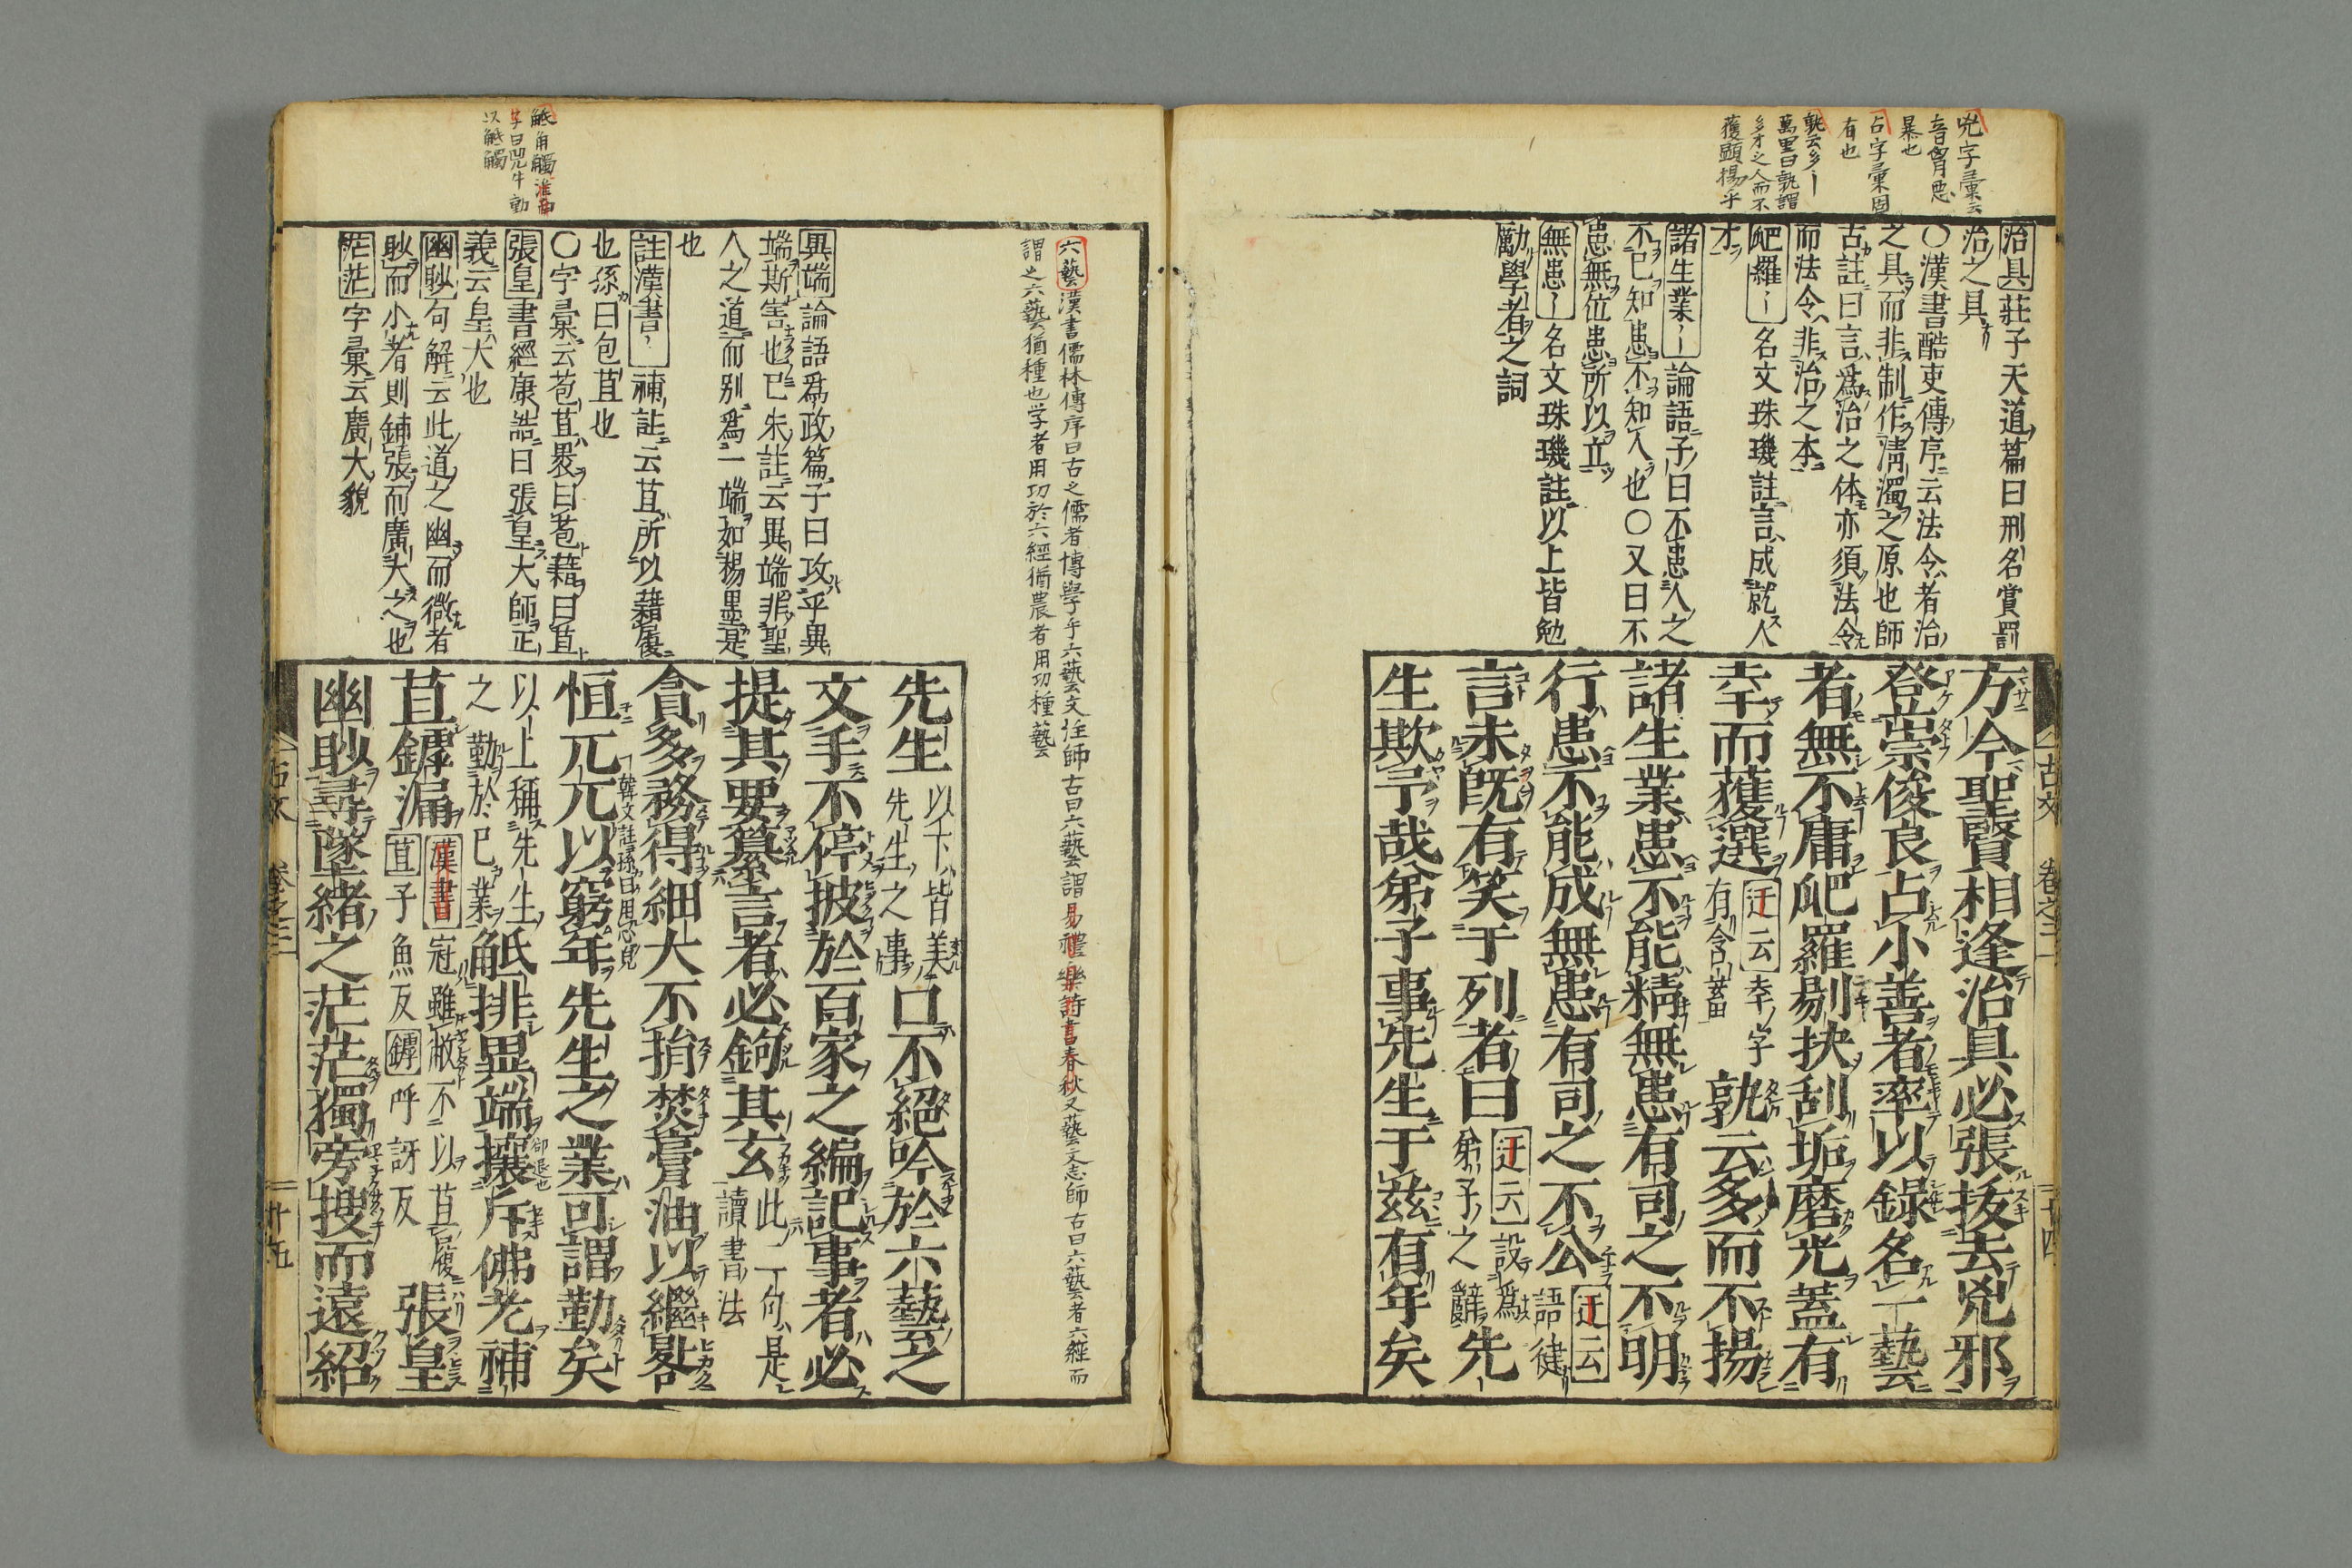 兇字彙云
音胷惡
暴也
占字彙固
有也
孰云多〡
萬里曰孰謂
多才之人而不
獲顕揚乎
治具莊子天道篇曰刑名賞罰
治之具
〇漢書酷吏傳序云法令者治
之具而非制作清濁之原也師
古註曰言爲治之体亦須法令
而法令非治之本
爬羅〡名文珠璣註言成就人
才
諸生業〡論語子曰不患人之
不已知患不知人也〇又曰不
患無位患所以立
無患〡名文珠璣註以上皆勉
勵學者之詞
方今聖賢相逢治具必張抜去兇邪
登崇俊良占小善者率以録名一藝
者無不庸爬羅剔抉刮垢磨光蓋有
幸而獲選
迂云幸字
有含蓄
孰云多而不揚
諸生業患不能精無患有司之不明
行患不能成無患有司之不公
迂云
語健
言未既有笑于列者曰
迂云設爲
弟子之辭
先
生欺予哉弟子事先生于茲有年矣
古文 卷之二
二十四
六藝漢書儒林傳序曰古之儒者博學乎六藝文注師古曰六藝謂易禮樂詩書春秋又藝文志師古曰六藝者六經而
謂之六藝猶種也学者用功於六經猶農者用功種藝
觝角觸
字曰兕牛動
以觝觸
異端論語爲政篇子曰攻乎異
端斯害也已朱註云異端非聖
人之道而别爲一端如楊墨是
也
註漢書〡補註云苴所以藉履
也孫曰包苴也
〇字彙云苞苴裹曰苞藉曰苴
張皇書經康誥曰張皇大師正
義云皇大也
幽眇句解云此道之幽而微者
眇而小者則鋪張而廣大之也
茫茫字彙云廣大貌
先生
以下皆美
先生之事
口不絕吟於六藝之
文手不停披於百家之編記事者必
提其要纂言者必鉤其玄
此一句是
讀書法
貪多務得細大不捐焚膏油以繼晷
恒兀兀以窮年先生之業可謂勤矣
韓文註孫曰用心皃
以上稱先生
之勤於已業
觝排異端攘斥佛老補
却退也
苴罅漏
漢書冠雖敝不以苴履
苴子魚反罅呼訝反
張皇
幽眇尋墜緒之茫茫獨旁搜而遠紹
古文 卷之二
廿五